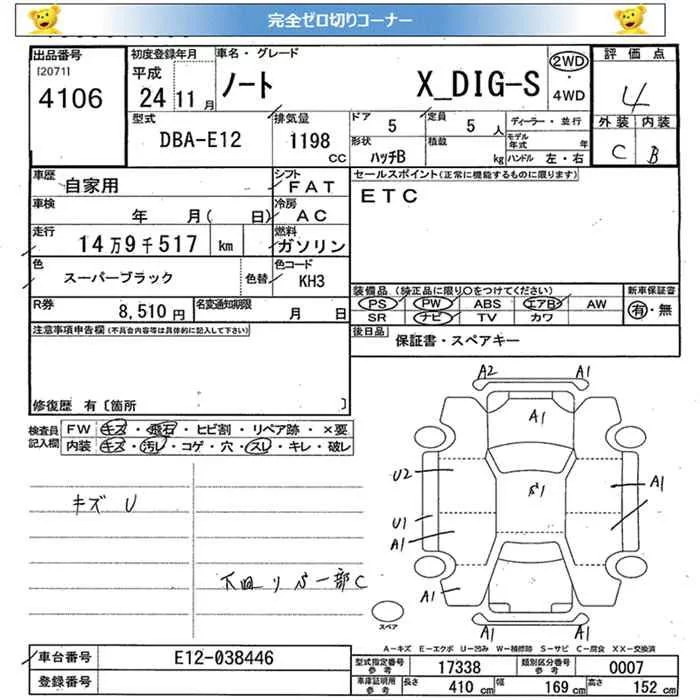 完全ゼロ切りコーナー
出品番号
[2071]
4106
初度登録年月
平成
24 11月
車名・グレード
ノート X_DIG-S
2WD
・
4WD
評価点
4
外装 内装
C B
型式
DBA-E12
排気量
1198
CC
ドア 5
定員 5 人
形状
ハッチB
積載 kg
ディーラー・並行
モデル年式 年
ハンドル 左・右
車歴 自家用
シフト FAT
車検 年 月( 日)
冷房 AC
走行 14万9千517 km
燃料 ガソリン
色 スーパーブラック
色替
色コード KH3
R券 8,510円
名変通知期限 月 日
セールスポイント(正常に機能するものに限ります)
ETC
装備品(純正品に限り○をつけてください)
新車保証書
PS PW ABS エアB AW
SR ナビ TV カワ
有・無
後日品 保証書・スペアキー
注意事項申告欄(不具合内容等は具体的に記入して下さい)
修復歴 有〔箇所 〕
検査員記入欄
FW キズ・飛石・ヒビ割・リペア跡・×要
内装 キズ・汚レ・コゲ・穴・スレ・キレ・破レ
キズ U
下回りS一部C
A2 A1
A1
U2
S1
A1
U1
A1
A1
A1 A1
スペア
A-キズ E-エクボ U-凹み W-補修跡 S-サビ C-腐食 XX-交換済
車台番号 E12-038446
登録番号
型式指定番号 参考 17338
類別区分番号 参考 0007
車庫証明用 参考 長さ 410 cm 幅 169 cm 高さ 152 cm